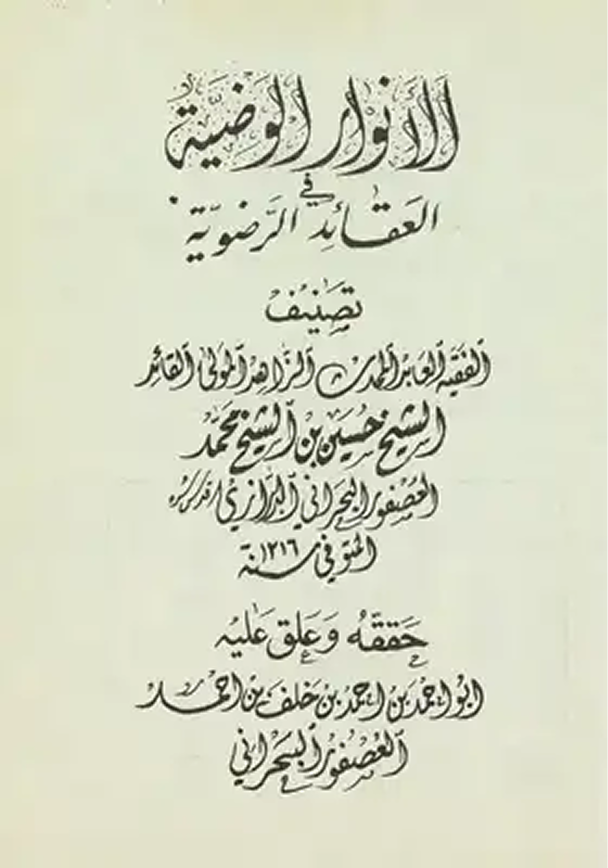 الأنوار الوضيّة
في
العقائد الرّضويّة
تصنيف
الفقيه العابد المحدث الزاهد المولى القائد
الشيخ حسين بن الشيخ محمّد
العصفور البحراني الدرازي قدس سره
المتوفى سنة ١٢١٦
حققه وعلق عليه
ابو احمد بن احمد بن خلف بن احمد
العصفور البحراني